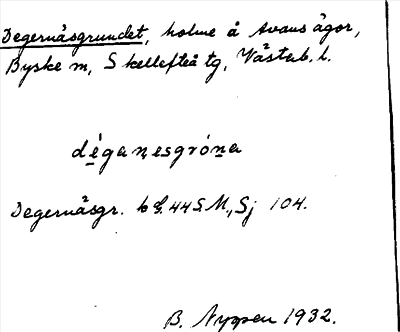 Degernäsgrundet, holme å Avans ägor,
Byske m, Skellefteå tg, Västerb. l.
déganesgróna
Degernäsgr. bl. 44 S.M., Sj 104.
B. Nyppen 1932.